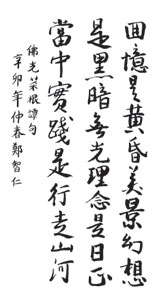 回憶是黃昏美景幻想
是黑暗無光理念是日正
當中實踐是行走山河
佛光菜根譚句
辛卯年仲春鄭智仁